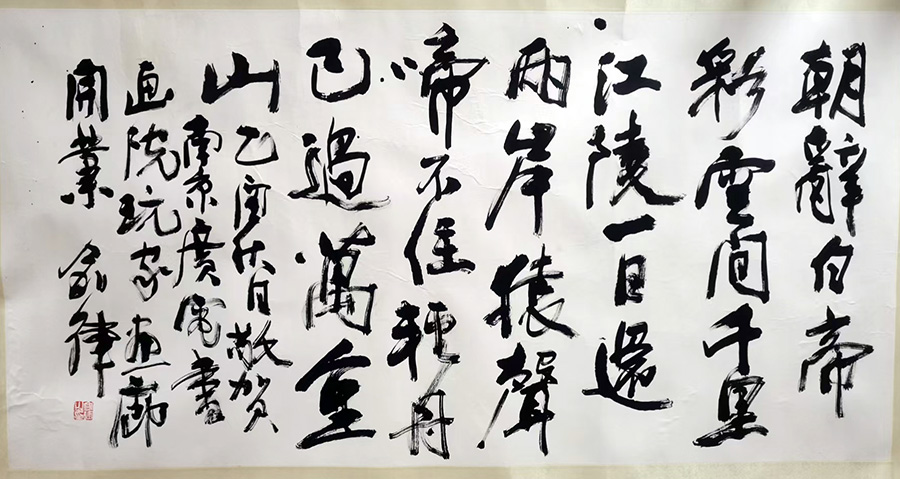 朝辭白帝
彩雲間千里
江陵一日還
兩岸猿聲
啼不住輕舟
已過萬重
山
乙酉伏日敬賀
南京廣電書
画院玩家画廊
開業